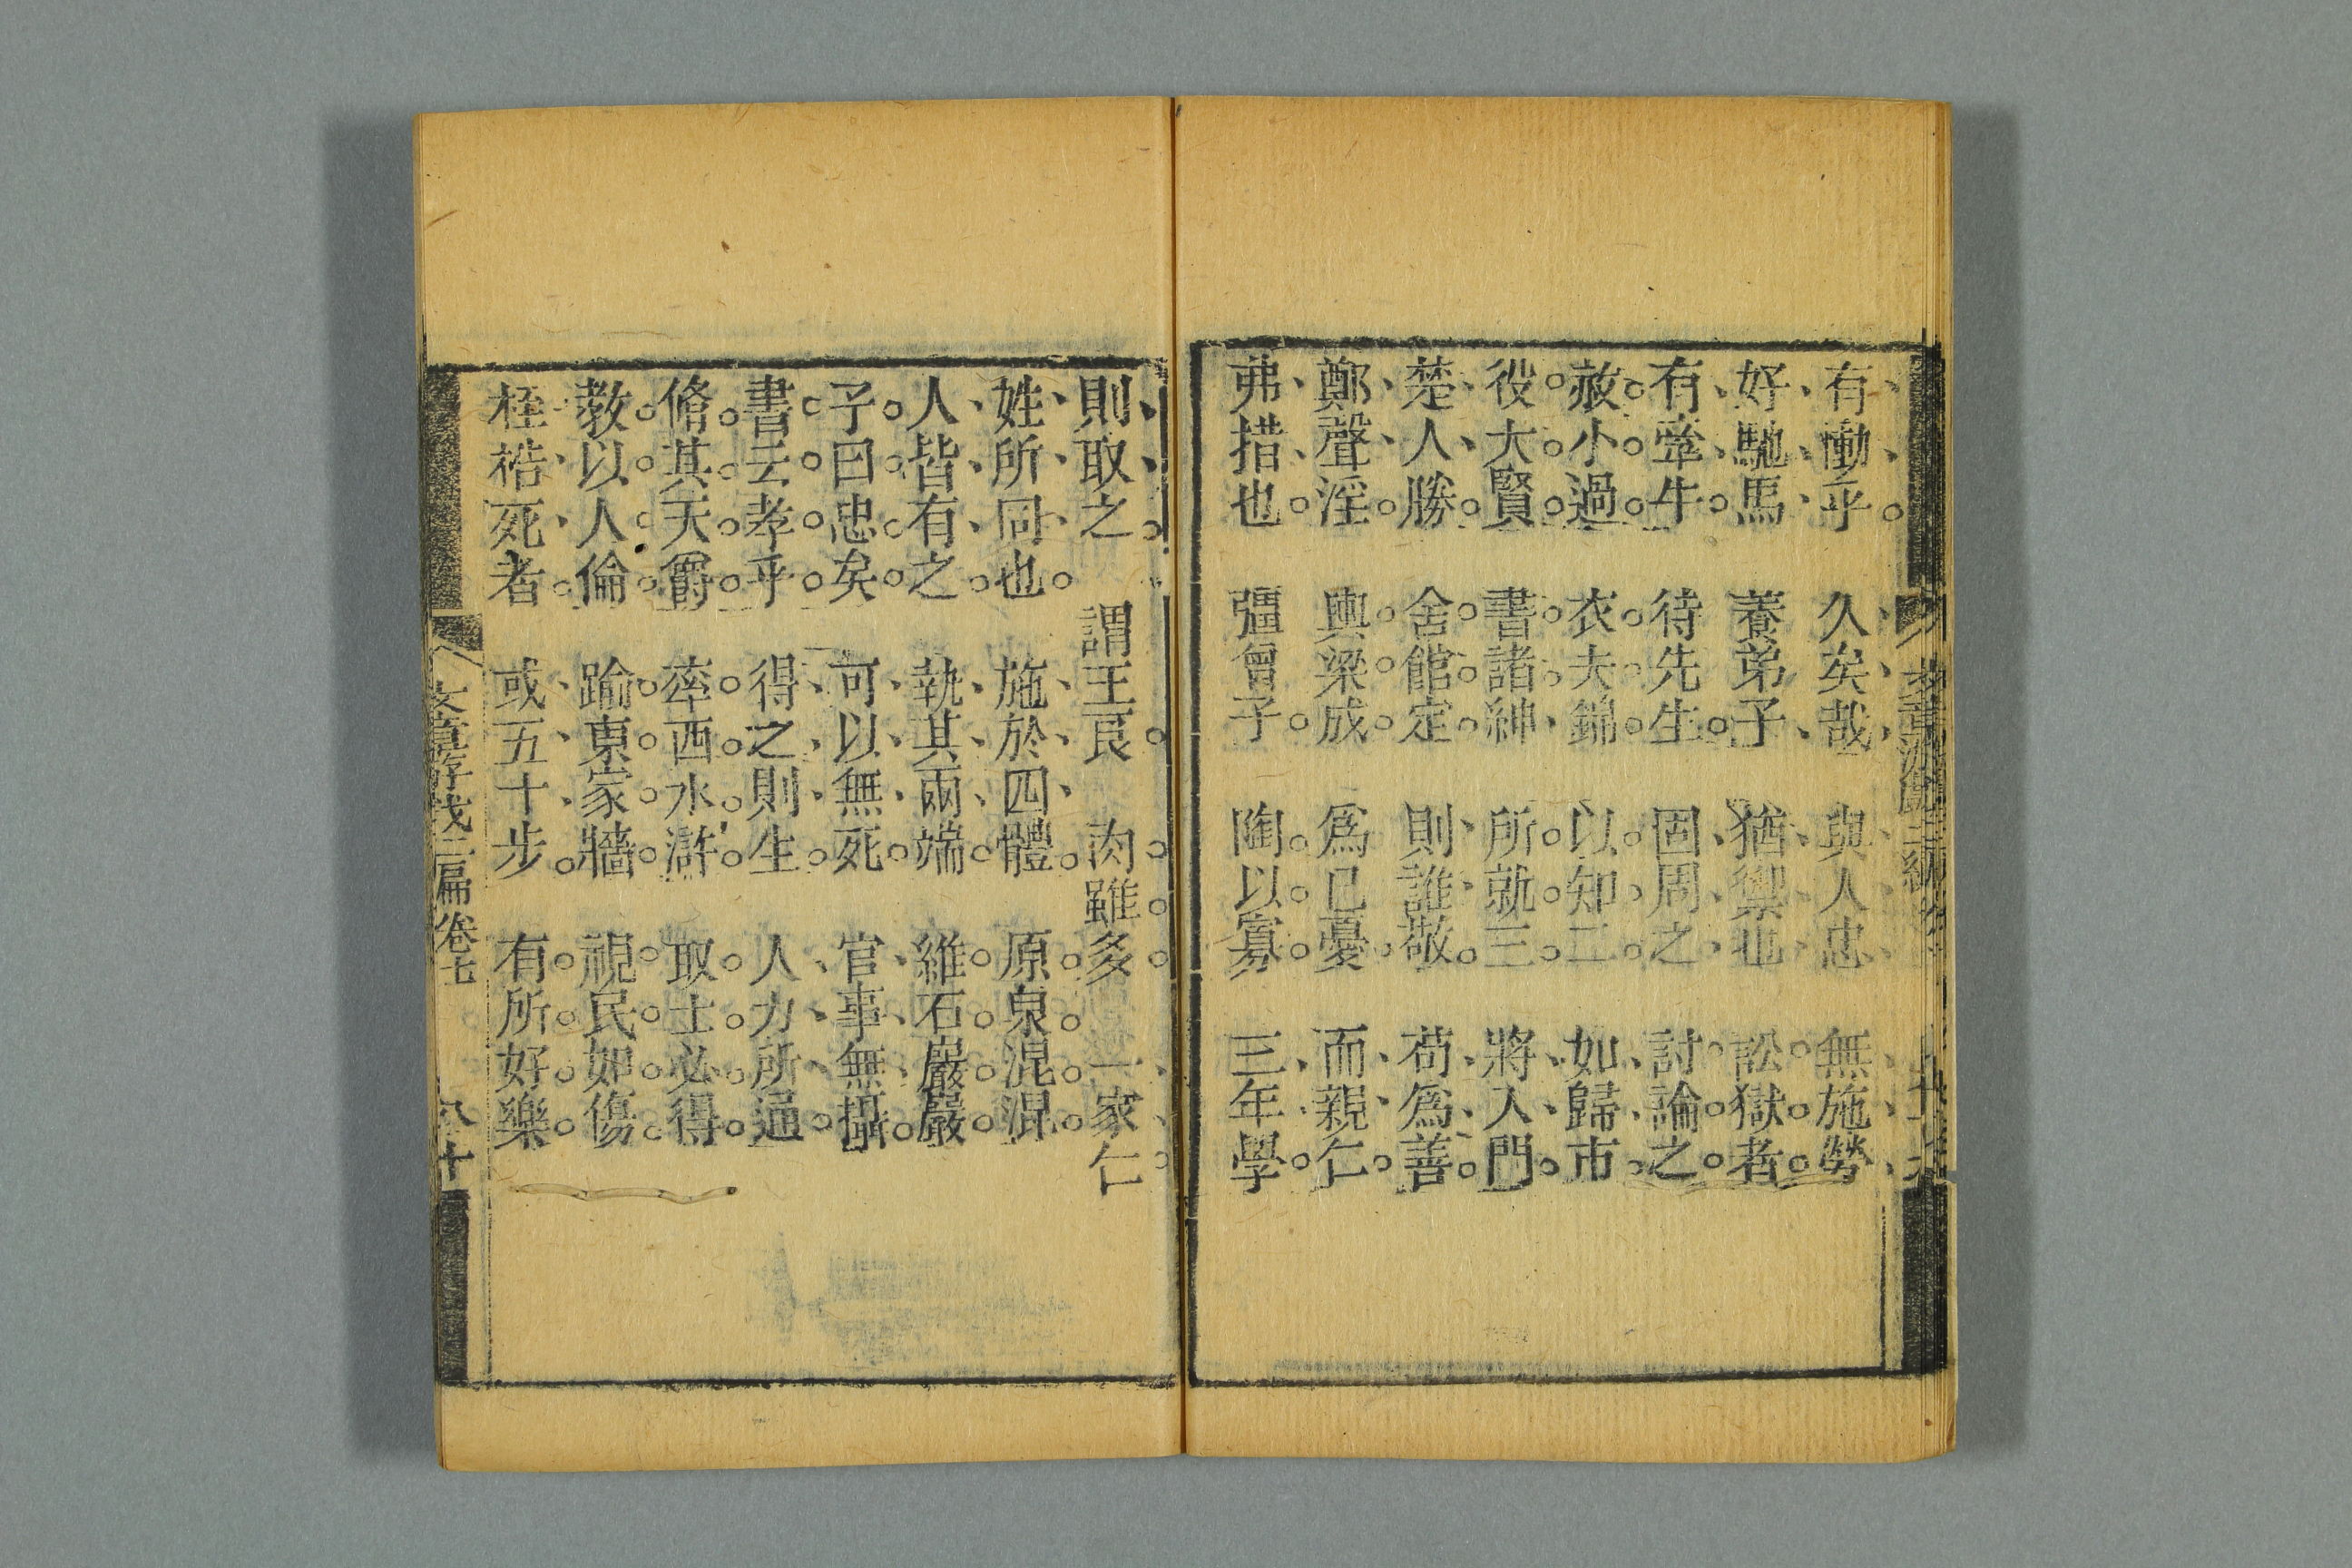 有慟乎 久矣哉 與人忠 無施勞
好馳馬 養弟子 猶禦也 訟獄者
有牽牛 待先生 固周之 討論之
赦小過 衣夫錦 以知二 如歸市
役大賢 書諸紳 所就三 將入門
楚人勝 舍館定 則誰敬 苟爲善
鄭聲淫 輿梁成 爲己憂 而親仁
弗措也 彊曾子 陶以寡 三年學
則取之 謂王良 肉雖多 一家仁
姓所同也 施於四體 原泉混混
人皆有之 執其兩端 維石巖巖
子曰忠矣 可以無死 官事無攝
書云孝乎 得之則生 人力所通
脩其天爵 率西水滸 取士必得
教以人倫 踰東家牆 視民如傷
桎梏死者 或五十步 有所好樂
卷七 八十